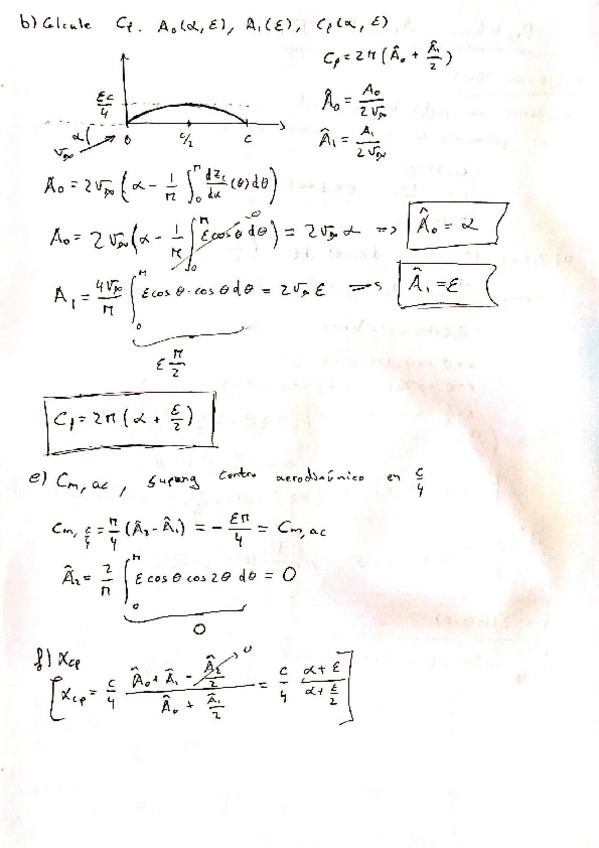 b) Calcule Cl. A₀(α, ε), A₁(ε), Cl(α, ε)
Cl = 2π(Â₀ + Â₁/2)
εc/4
Â₀ = A₀/2V∞
Â₁ = A₁/2V∞
α
V∞
0 c/2 c
A₀ = 2V∞(α - 1/π ∫₀^π dz_c/dx (θ)dθ)
A₀ = 2V∞(α - 1/π ∫₀^π ε cos θ dθ) = 2V∞ α => Â₀ = α
0
A₁ = 4V∞/π ∫₀^π ε cos θ · cos θ dθ = 2V∞ ε => Â₁ = ε
ε π/2
Cl = 2π(α + ε/2)
e) Cm,ac, supang centro aerodinámico en c/4
Cm,c/4 = π/4 (Â₂ - Â₁) = - επ/4 = Cm,ac
Â₂ = 2/π ∫₀^π ε cos θ cos 2θ dθ = 0
0
f) Xcp
[xcp = c/4 (Â₀ + Â₁ - Â₂/2)/(Â₀ + Â₁/2) = c/4 (α + ε)/(α + ε/2)]
0